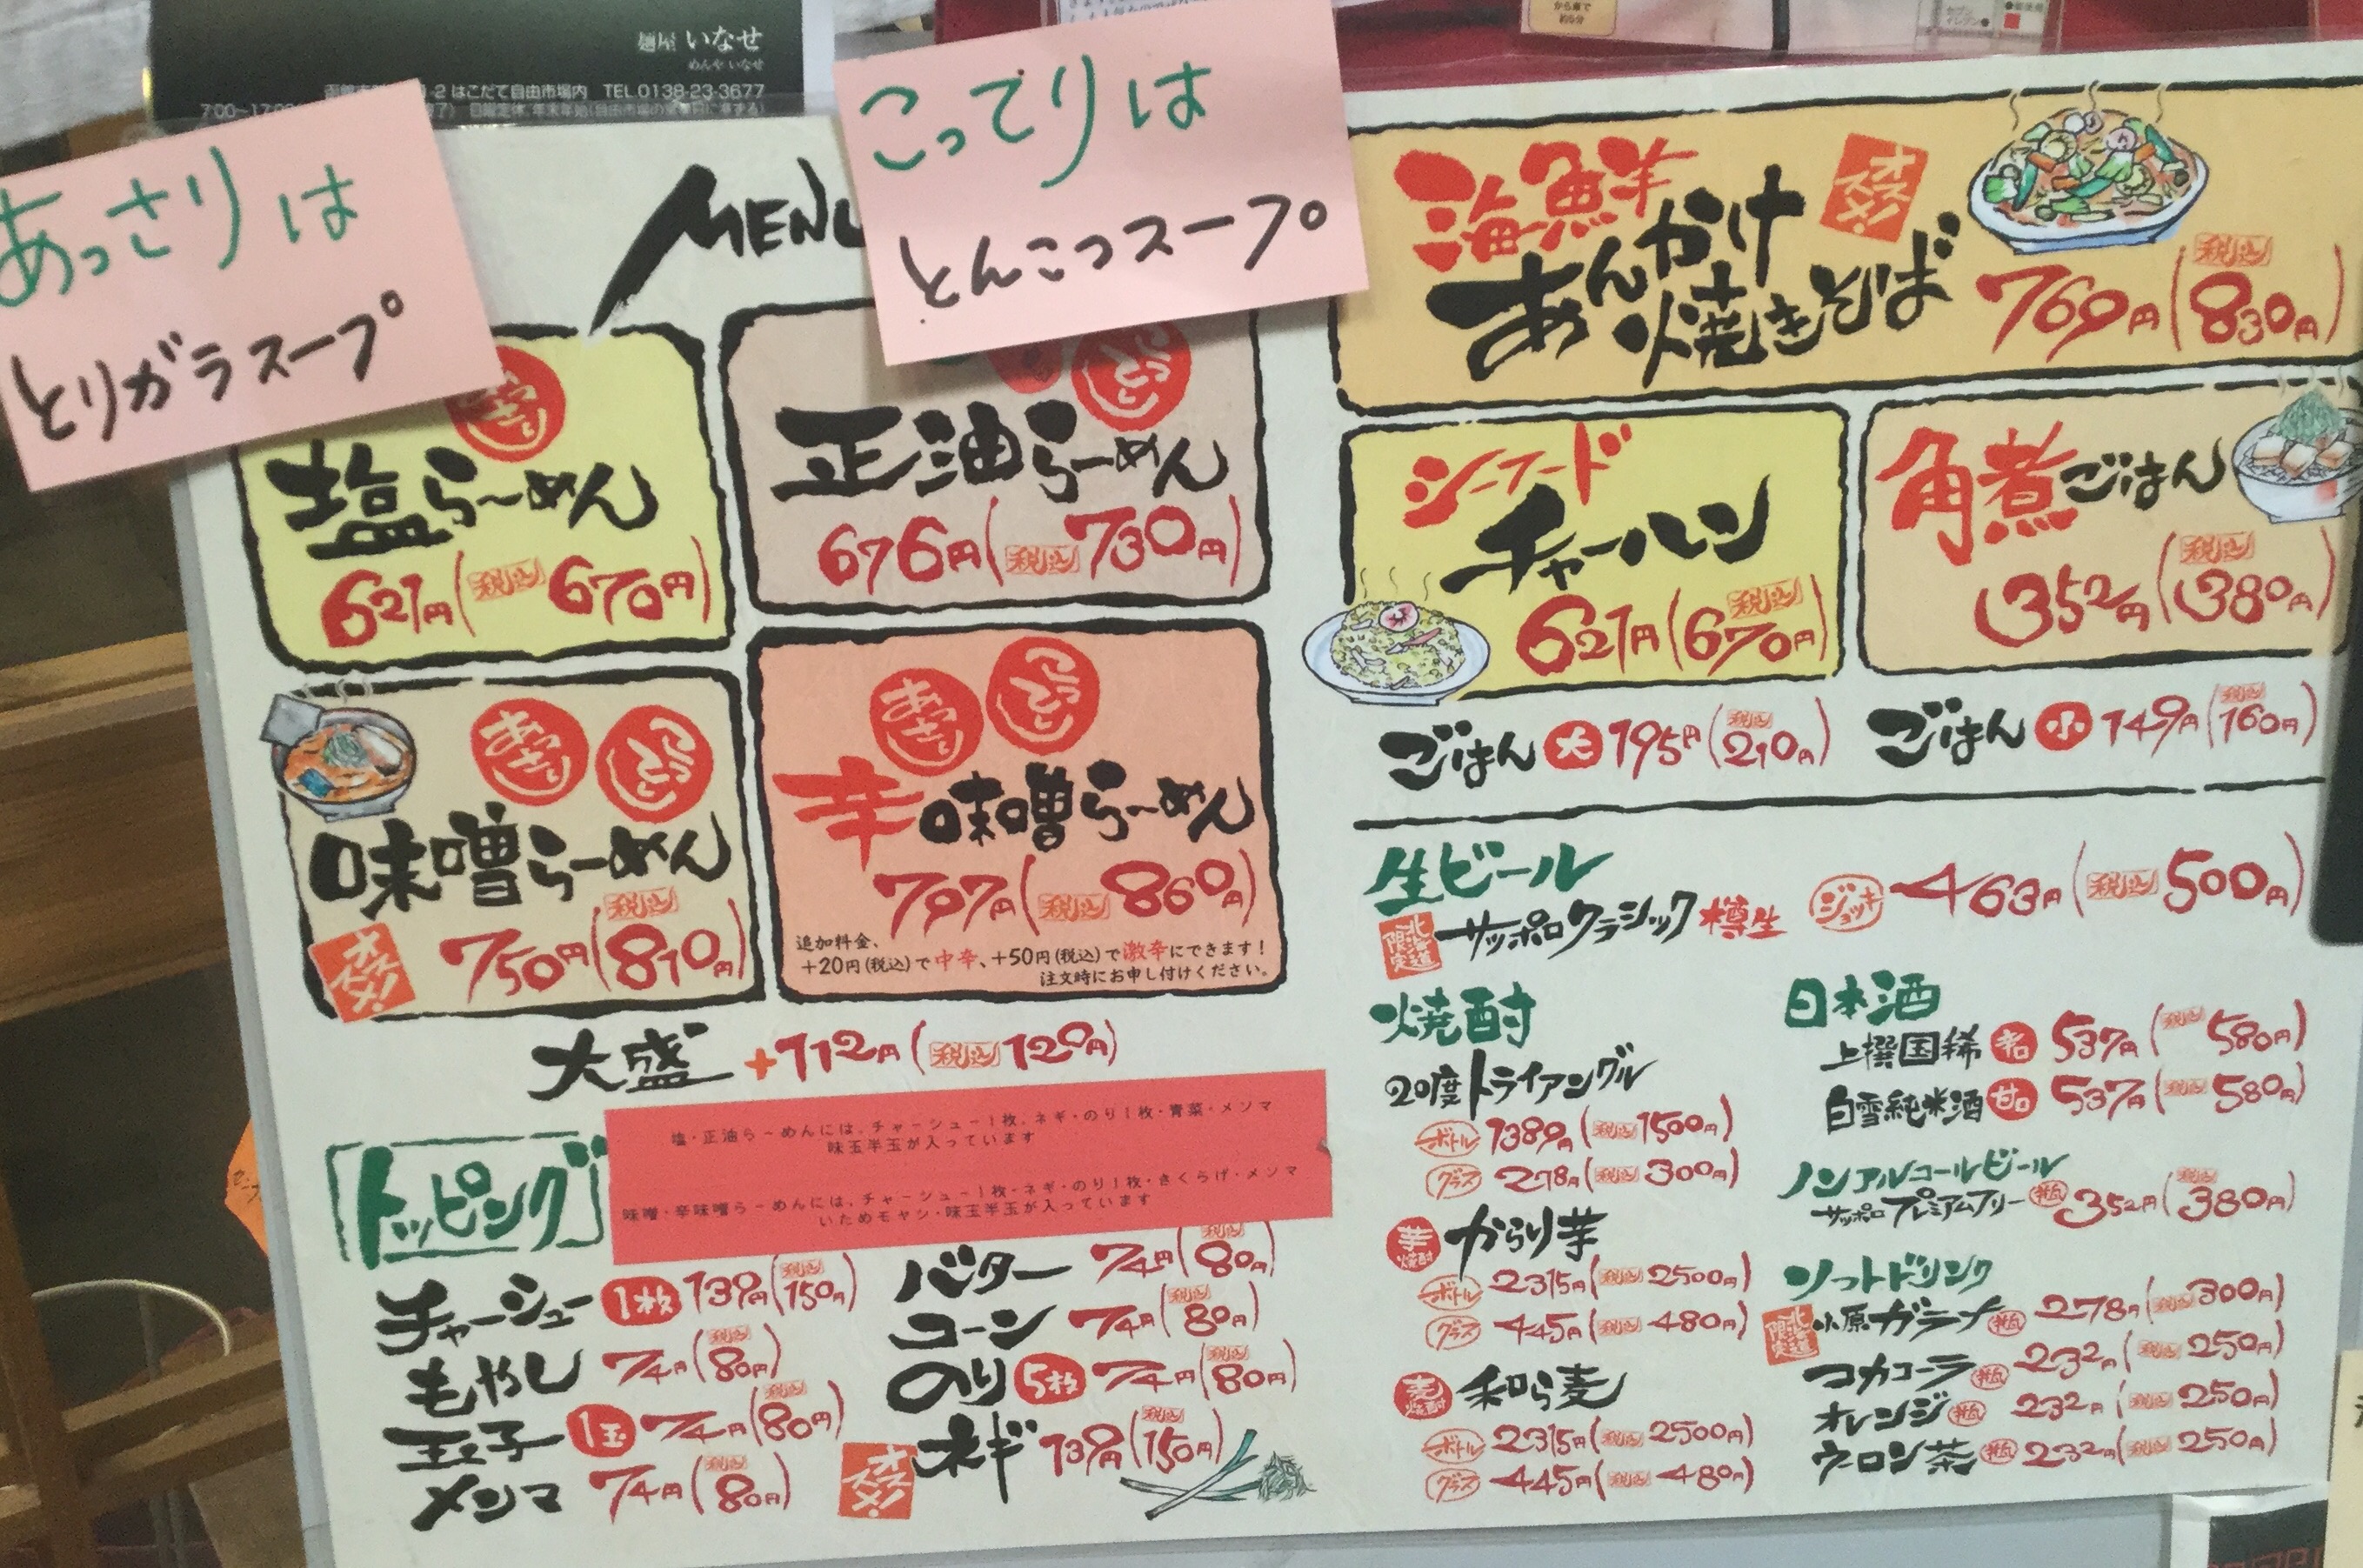 麺屋 いなせ
めんや いなせ
2 はこだて自由市場内 TEL.0138-23-3677
あっさりは
とりガラスープ
こってりは
とんこつスープ
MENU
あっさり
塩らーめん
621円(税込670円)
こってり
正油らーめん
676円(税込730円)
あっさり こってり
味噌らーめん
オススメ!
750円(税込810円)
あっさり こってり
辛味噌らーめん
797円(税込860円)
追加料金、
+20円(税込)で中辛、+50円(税込)で激辛にできます!
注文時にお申し付けください。
大盛 +112円(税込120円)
塩・正油らーめんには、チャーシュー1枚、ネギ・のり1枚・青菜・メンマ
味玉半玉が入っています
味噌・辛味噌らーめんには、チャーシュー1枚・ネギ・のり1枚・きくらげ・メンマ
いためモヤシ・味玉半玉が入っています
トッピング
チャーシュー 1枚 139円(税込150円)
もやし 74円(税込80円)
玉子 1玉 74円(税込80円)
メンマ 74円(税込80円)
バター 74円(税込80円)
コーン 74円(税込80円)
のり 5枚 74円(税込80円)
オススメ! ネギ 139円(税込150円)
海鮮
あんかけ
焼きそば
オススメ!
769円(税込830円)
シーフード
チャーハン
621円(税込670円)
角煮ごはん
352円(税込380円)
ごはん 大 195円(税込210円)
ごはん 小 149円(税込160円)
生ビール
北海道限定 サッポロクラシック樽生 ジョッキ 463円(税込500円)
焼酎
20度トライアングル
ボトル 1389円(税込1500円)
グラス 278円(税込300円)
芋焼酎 からり芋
ボトル 2315円(税込2500円)
グラス 445円(税込480円)
麦焼酎 和ら麦
ボトル 2315円(税込2500円)
グラス 445円(税込480円)
日本酒
上撰国稀 辛口 537円(税込580円)
白雪純米酒 甘口 537円(税込580円)
ノンアルコールビール
サッポロプレミアムフリー 瓶 352円(税込380円)
ソフトドリンク
北海道限定 小原ガラナ 瓶 278円(税込300円)
コカコーラ 瓶 232円(税込250円)
オレンジ 瓶 232円(税込250円)
ウーロン茶 瓶 232円(税込250円)